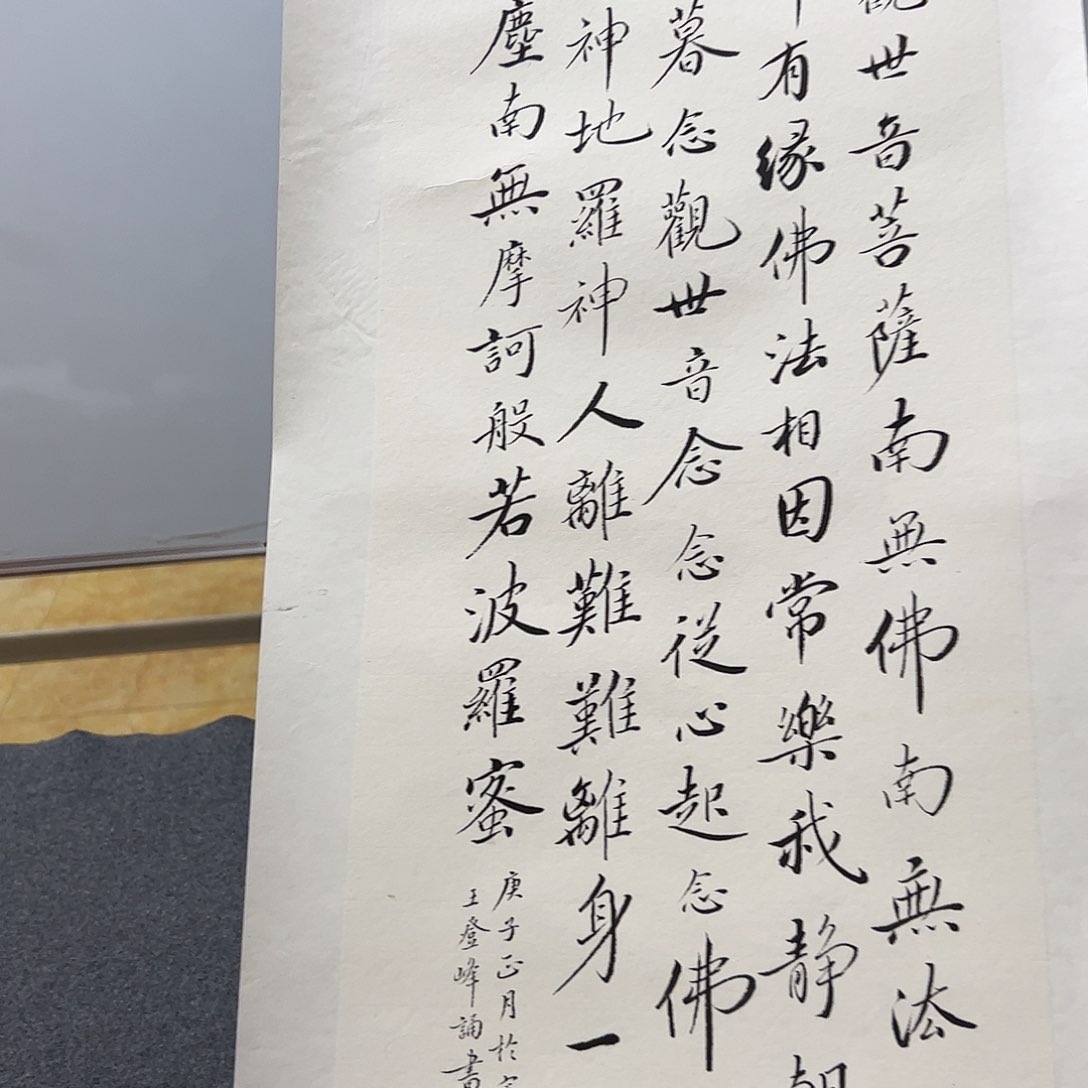 世音菩薩南無佛南無法
有緣佛法相因常樂我静
暮念觀世音念念從心起念佛
神地羅神人離難難離身一
塵南無摩訶般若波羅蜜
庚子正月於
王登峰誦書